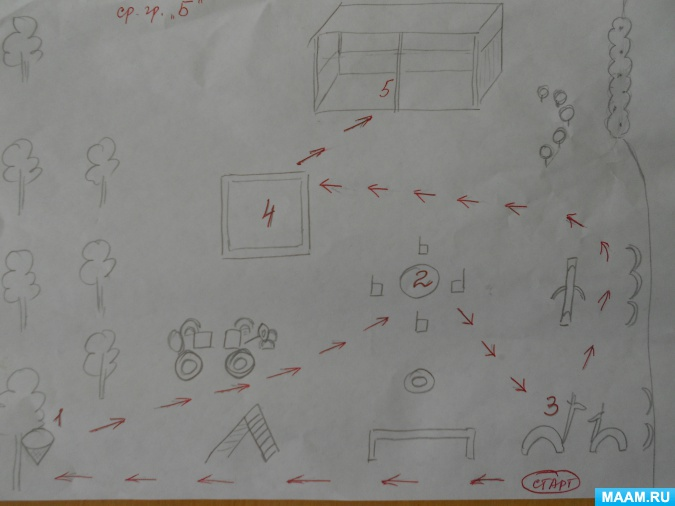 ср. гр. "Б"
5
4
2
1
3
СТАРТ
MAAM.RU